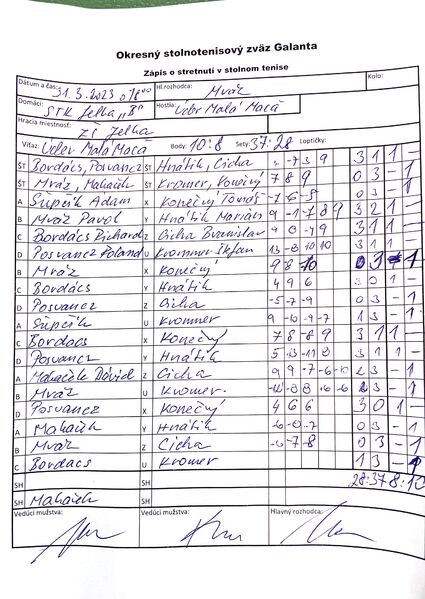 Okresný stolnotenisový zväz Galanta
Zápis o stretnutí v stolnom tenise
Dátum a čas: 31.3.2023 o 18:00 Hl.rozhodca: Mráz Kolo:
Domáci: STK Jelka "B" Hostia: Vder Malá Mača
Hracia miestnosť: ZŠ Jelka
Víťaz: Vder Malá Mača Body: 10:8 Sety: 37:28 Loptičky:
ŠT Bordács, Posvancz ŠT Hnátik, Cicha 3 1 1 -
ŠT Mráz, Mahaček ŠT Kromer, Konečný 7 8 9 0 3 - 1
A Šupčík Adam X Konečný Tomáš 0 3 - 1
B Mráz Pavol Y Hnátik Marián 9 -1 -7 8 9 3 2 1 -
C Bordács Richard Z Cicha Branislav 3 1 1 -
D Posvancz Roland U Krommer Štefan 3 1 1
B Mráz X Konečný 9 8 10 0 3 - 1
C Bordács Y Hnátik 4 9 6 3 0 1 -
D Posvancz Z Cicha -5 -7 -9 0 3 - 1
A Šupčík U Krommer 9 -10 -9 -7 1 3 - 1
C Bordacs X Konečný 7 8 -8 9 3 1 1 -
D Posvancz Y Hnátik 3 1 1 -
A Mahaček Dávid Z Cicha 9 9 -7 -6 -10 2 3 - 1
B Mráz U Kromer. 2 3 - 1
D Posvancz X Konečný 4 6 6 3 0 1 -
A Mahaček Y Hnátik 0 3 - 1
B Mráz Z Cicha -6 -7 -8 0 3 - 1
C Bordacs U Kromer 1 3 - 1
ŠH ŠH 28:37 8:10
ŠH Mahaček ŠH
Vedúci mužstva: Vedúci mužstva: Hlavný rozhodca: